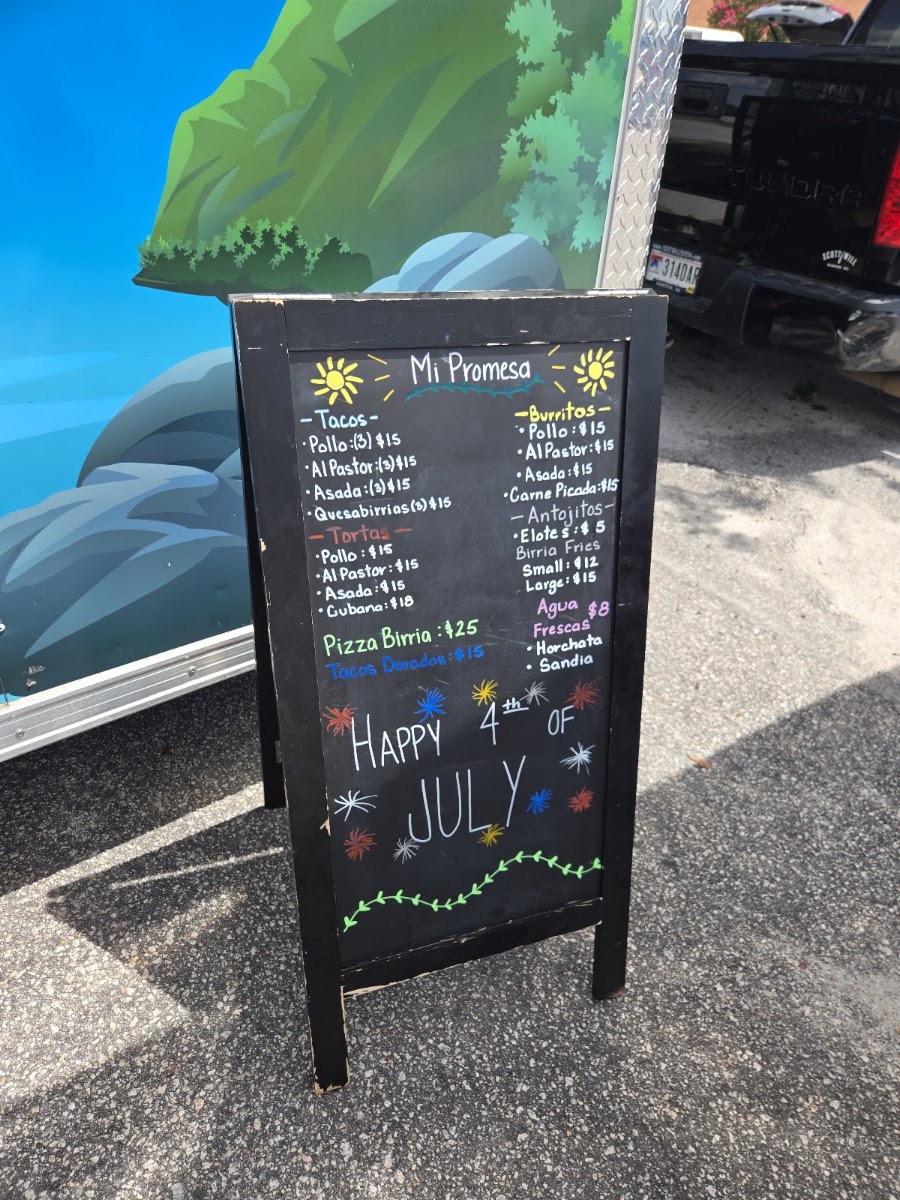 Mi Promesa
-Tacos-
• Pollo:(3) $15
• Al Pastor:(3) $15
• Asada:(3) $15
• Quesabirrias (3) $15
-Tortas-
• Pollo: $15
• Al Pastor: $15
• Asada: $15
• Cubana: $18
Pizza Birria: $25
Tacos Dorados: $15
-Burritos-
• Pollo: $15
• Al Pastor: $15
• Asada: $15
• Carne Picada: $15
-Antojitos-
• Elotes: $5
Birria Fries
Small: $12
Large: $15
Agua $8
Frescas
• Horchata
• Sandia
HAPPY 4th OF
JULY
TUNDRA
SCOTT WILL
314DAF